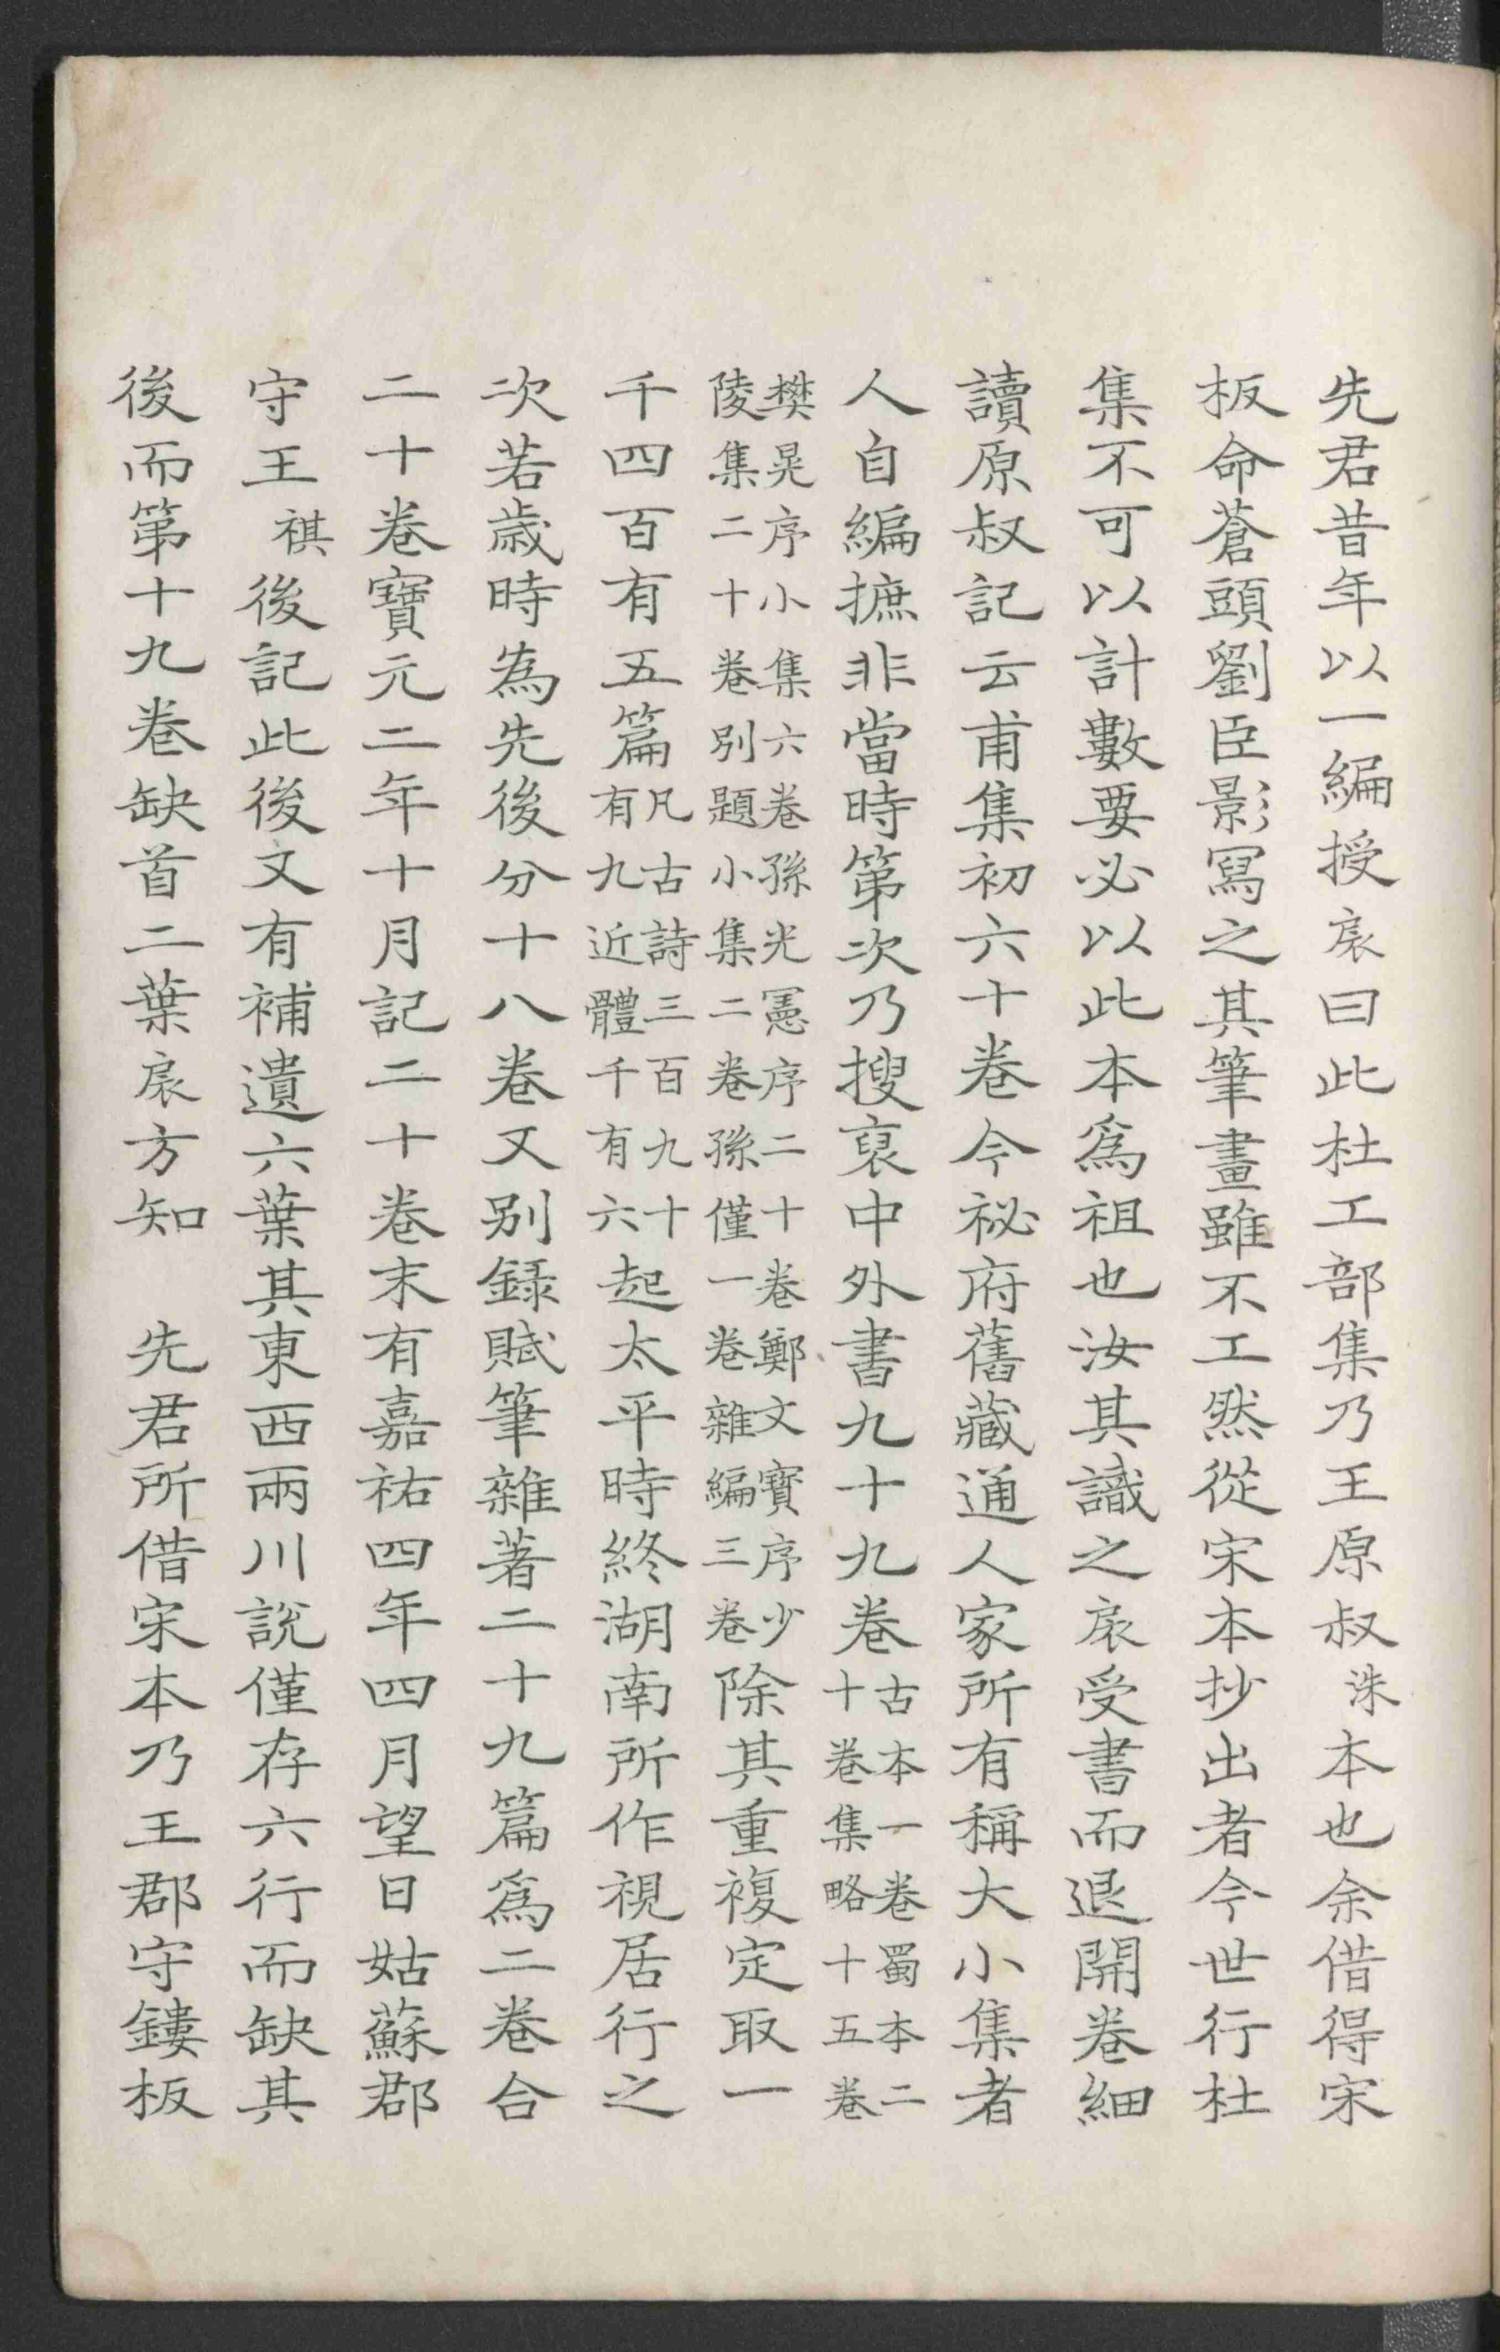 先君昔年以一編授扆曰此杜工部集乃王原叔洙本也余借得宋
板命蒼頭劉臣影寫之其筆畫雖不工然從宋本抄出者今世行杜
集不可以計數要必以此本爲祖也汝其識之扆受書而退開卷細
讀原叔記云甫集初六十卷今祕府舊藏通人家所有稱大小集者
人自編摭非當時第次乃搜裒中外書九十九卷古本一卷蜀本二十卷集略十五卷
樊晃序小集六卷孫光憲序二十卷鄭文寶序少陵集二十卷別題小集二卷孫僅一卷雜編三卷除其重複定取一
千四百有五篇凡古詩三百九十有九近體千有六起太平時終湖南所作視居行之
次若歲時為先後分十八卷又別錄賦筆雜著二十九篇爲二卷合
二十卷寶元二年十月記二十卷末有嘉祐四年四月望日姑蘇郡
守王祺後記此後又有補遺六葉其東西兩川說僅存六行而缺其
後而第十九卷缺首二葉扆方知　先君所借宋本乃王郡守鏤板